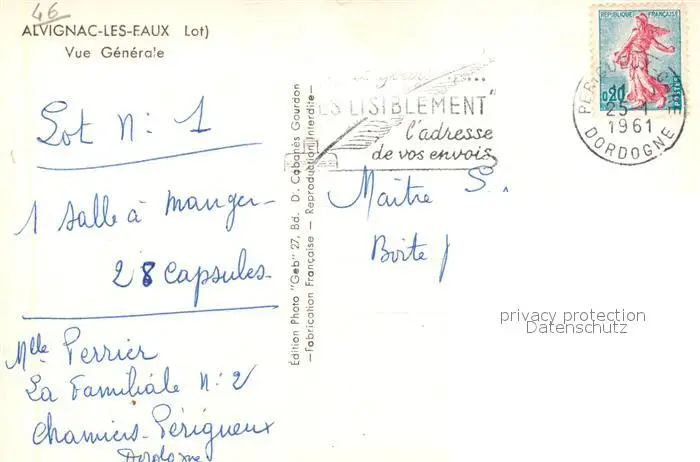 46
ALVIGNAC-LES-EAUX Lot)
Vue Générale
Lot N: 1
1 Salle à manger-
28 Capsules-
Mlle Perrier
La Familiale N: 2
Chamiers-Périgueux
Dordogne
Edition Photo "Geb" 27, Bd. D. Cabanès Gourdon
—Fabrication Française — Reproduction Interdite—
LISIBLEMENT"
l'adresse
de vos envois
REPUBLIQUE FRANÇAISE
0,20
POSTES
PERIGUEUX
25-1
1961
DORDOGNE
Maître S.
Boite
privacy protection
Datenschutz